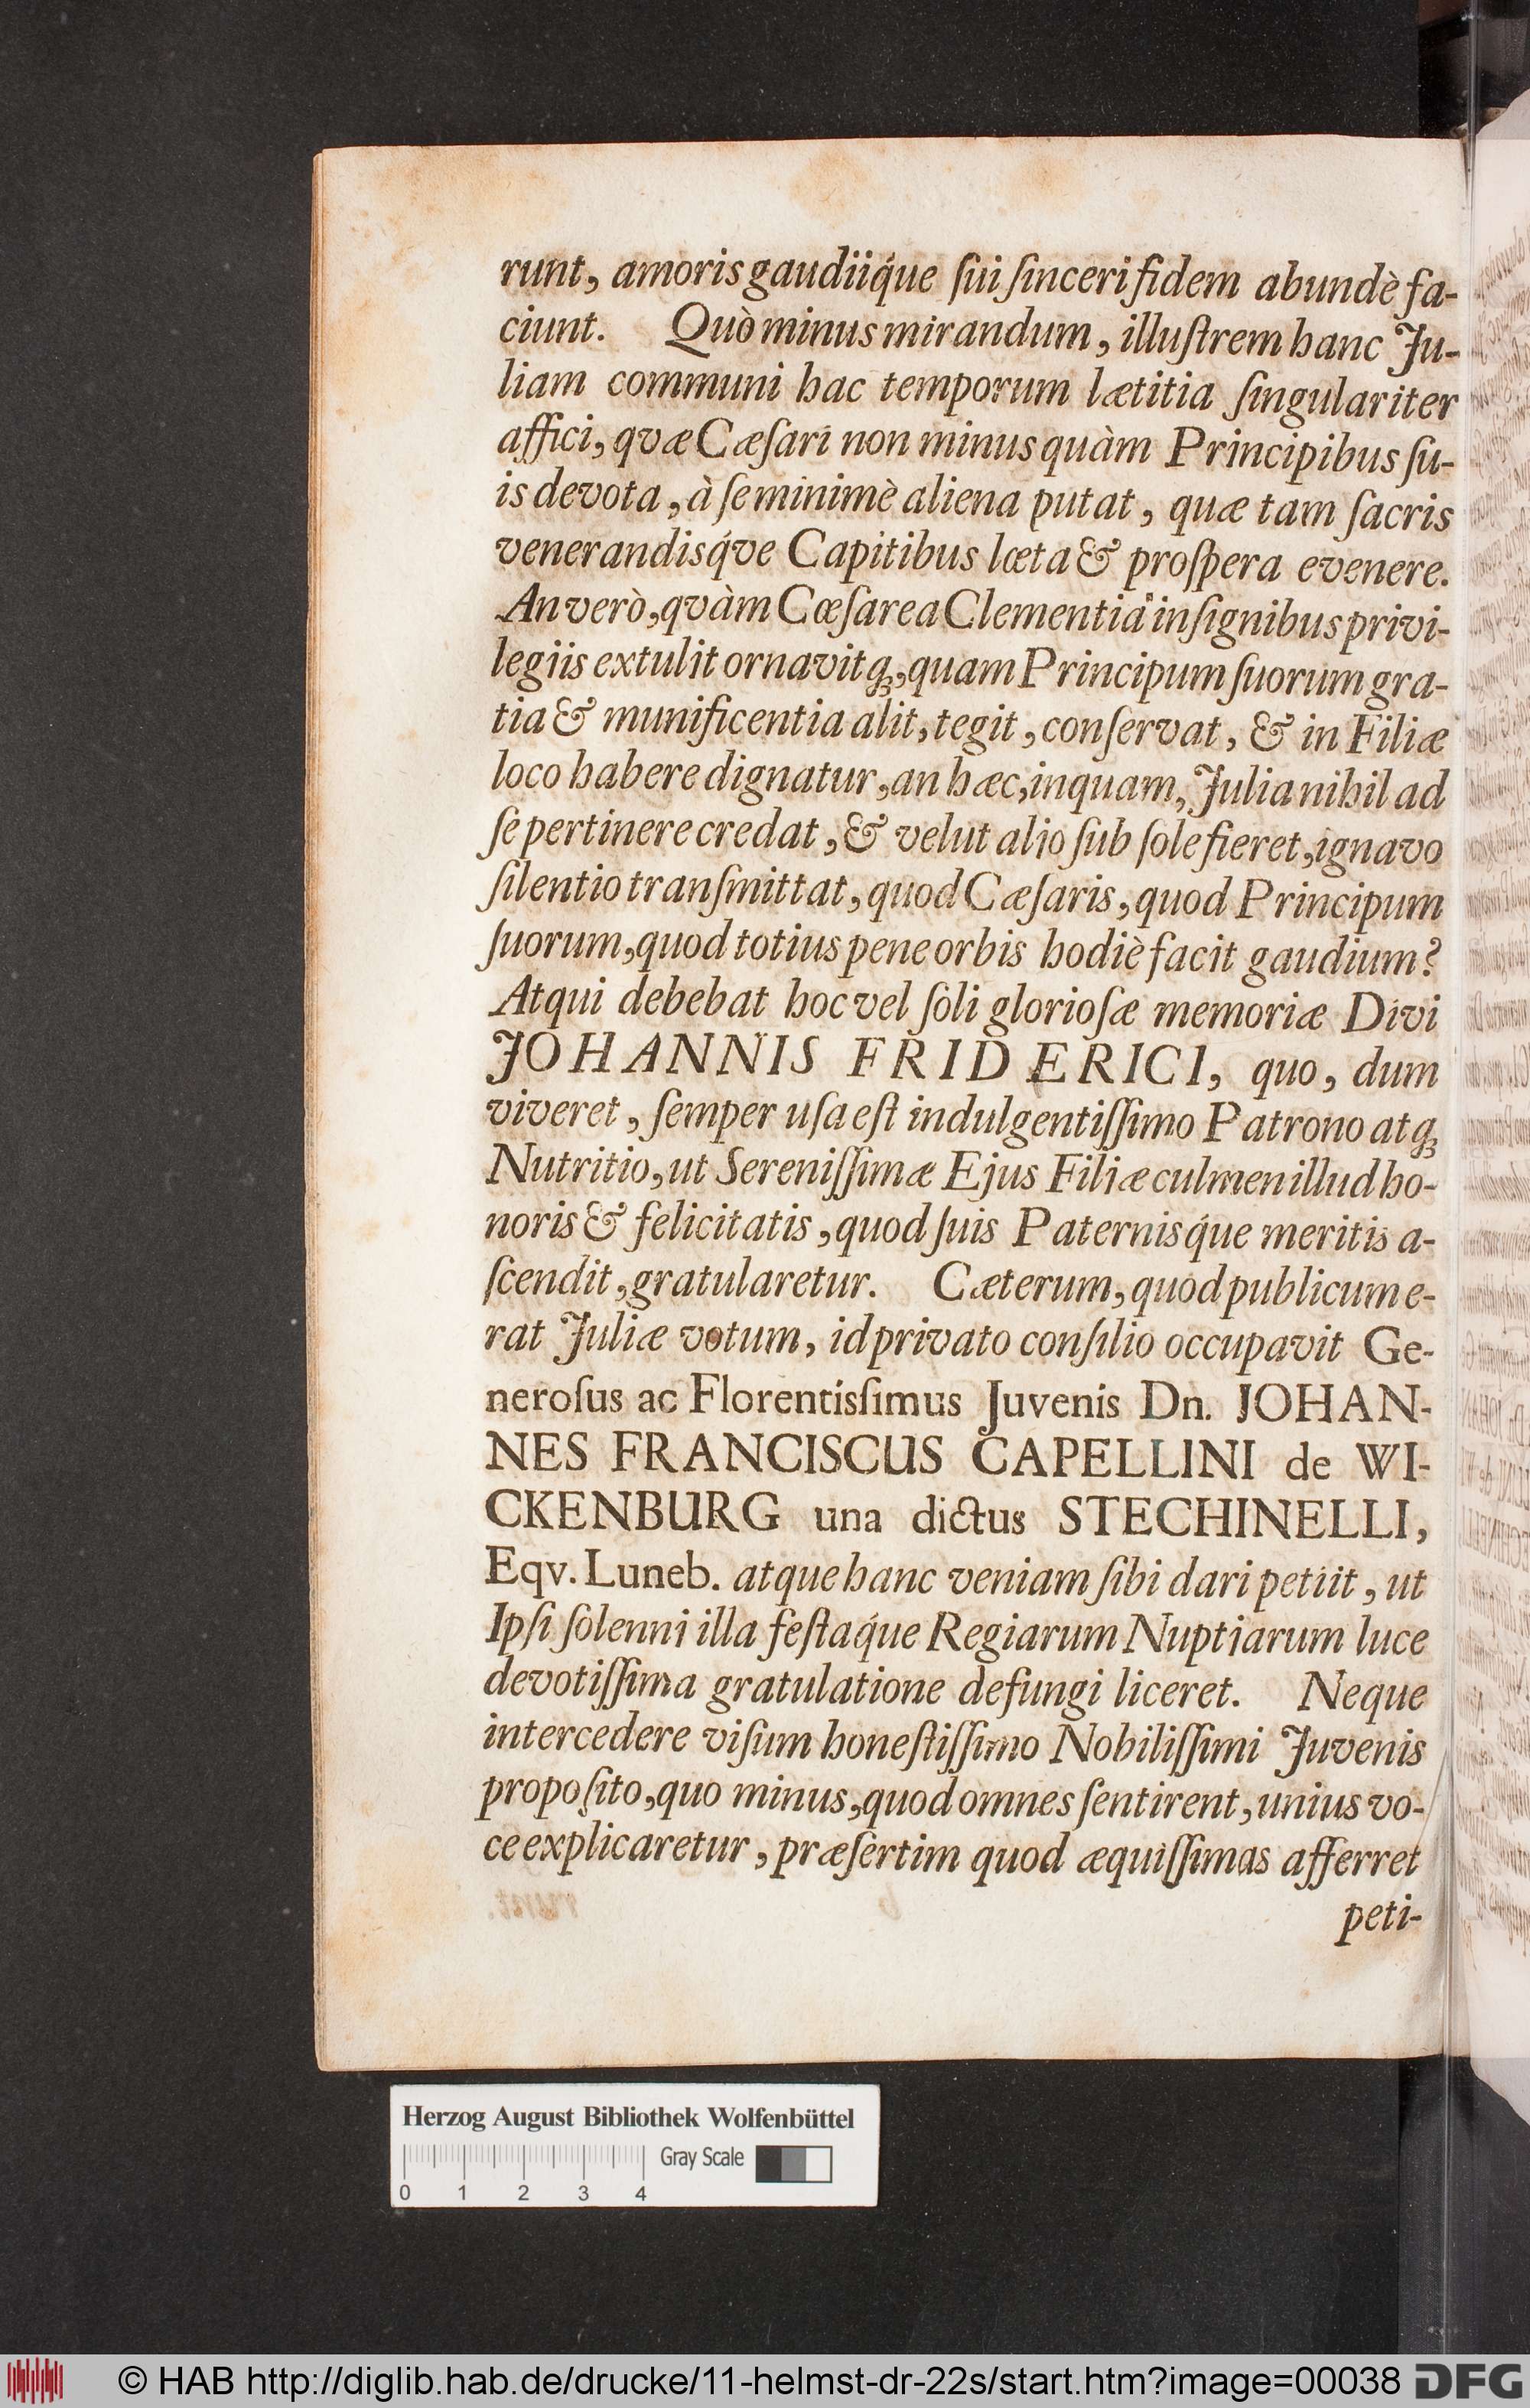 runt, amoris gaudiiq́ue ſui ſinceri fidem abundè fa-
ciunt. Quò minus mirandum, illuſtrem hanc Ju-
liam communi hac temporum lætitia ſingulariter
affici, qvæ Cæſari non minus quàm Principibus ſu-
is devota, à ſe minimè aliena putat, quæ tam ſacris
venerandisq́ve Capitibus læta & proſpera evenere.
An verò, qvàm Cæſarea Clementia inſignibus privi-
legiis extulit ornavitq;, quam Principum ſuorum gra-
tia & munificentia alit, tegit, conſervat, & in Filiæ
loco habere dignatur, an hæc, inquam, Julia nihil ad
ſe pertinere credat, & velut alio ſub ſole fieret, ignavo
ſilentio tranſmittat, quod Cæſaris, quod Principum
ſuorum, quod totius pene orbis hodiè facit gaudium?
Atqui debebat hoc vel ſoli glorioſæ memoriæ Divi
JOHANNIS FRIDERICI, quo, dum
viveret, ſemper uſa eſt indulgentiſſimo Patrono atq;
Nutritio, ut Sereniſſimæ Ejus Filiæ culmen illud ho-
noris & felicitatis, quod ſuis Paternisq́ue meritis a-
ſcendit, gratularetur. Cæterum, quod publicum e-
rat Juliæ votum, id privato conſilio occupavit Ge-
neroſus ac Florentisſimus Juvenis Dn. JOHAN-
NES FRANCISCUS CAPELLINI de WI-
CKENBURG una dictus STECHINELLI,
Eqv. Luneb. atque hanc veniam ſibi dari petiit, ut
Ipſi ſolenni illa feſtaq́ue Regiarum Nuptiarum luce
devotiſſima gratulatione defungi liceret. Neque
intercedere viſum honeſtiſſimo Nobiliſſimi Juvenis
propoſito, quo minus, quod omnes ſentirent, unius vo-
ce explicaretur, præſertim quod æquiſſimas afferret
peti-
Herzog August Bibliothek Wolfenbüttel
Gray Scale
0 1 2 3 4
© HAB http://diglib.hab.de/drucke/11-helmst-dr-22s/start.htm?image=00038 DFG